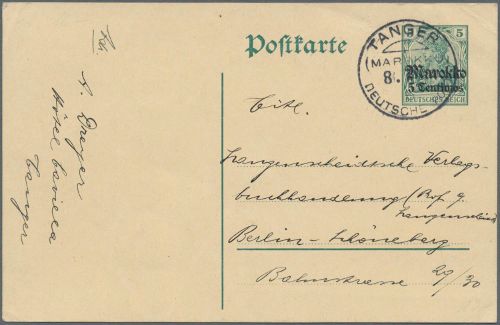 Postkarte
TANGER
(MAROKKO)
8
DEUTSCHE
5
Marokko
5 Centimos
DEUTSCHES REICH
Abs.
A. Dreyer
Hôtel Cavilla
Tanger
Tit.
Langenscheidtsche Verlags-
buchhandlung (Prof. G.
Langenscheidt
Berlin-Schöneberg
Bahnstrasse 29/30